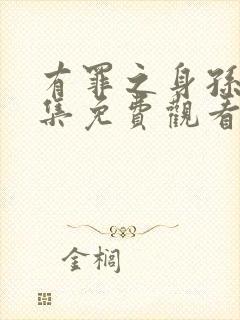 有罪之身孫
集免費觀看
金榈